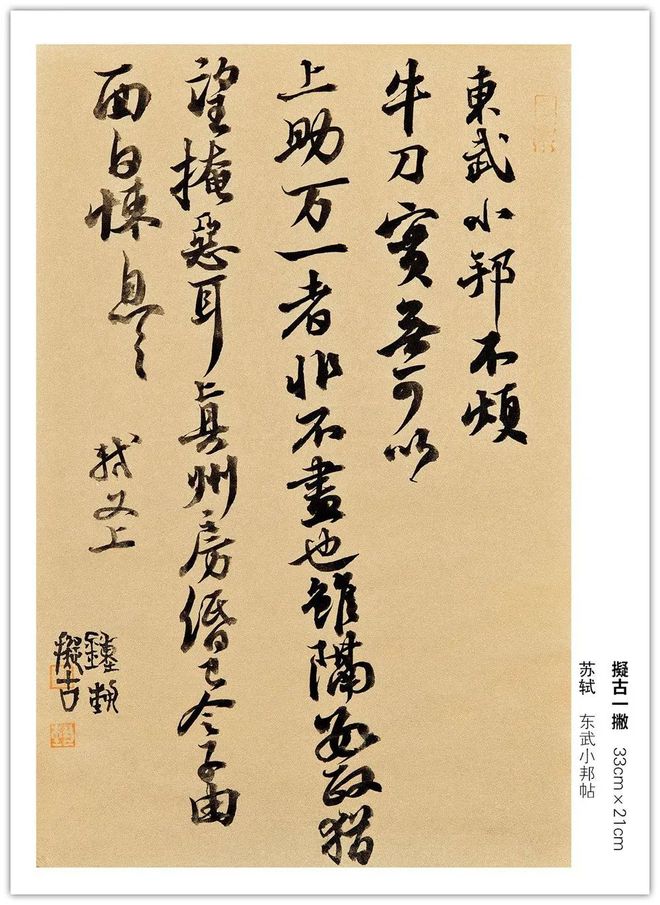 東武小邦不煩
牛刀實無可以
上助万一者非不盡也雖隔數政猶
望掩惡耳真州房緡已令子由
面白悚息々
軾又上
擬古
擬古一撇 33cm×21cm
苏轼 东武小邦帖